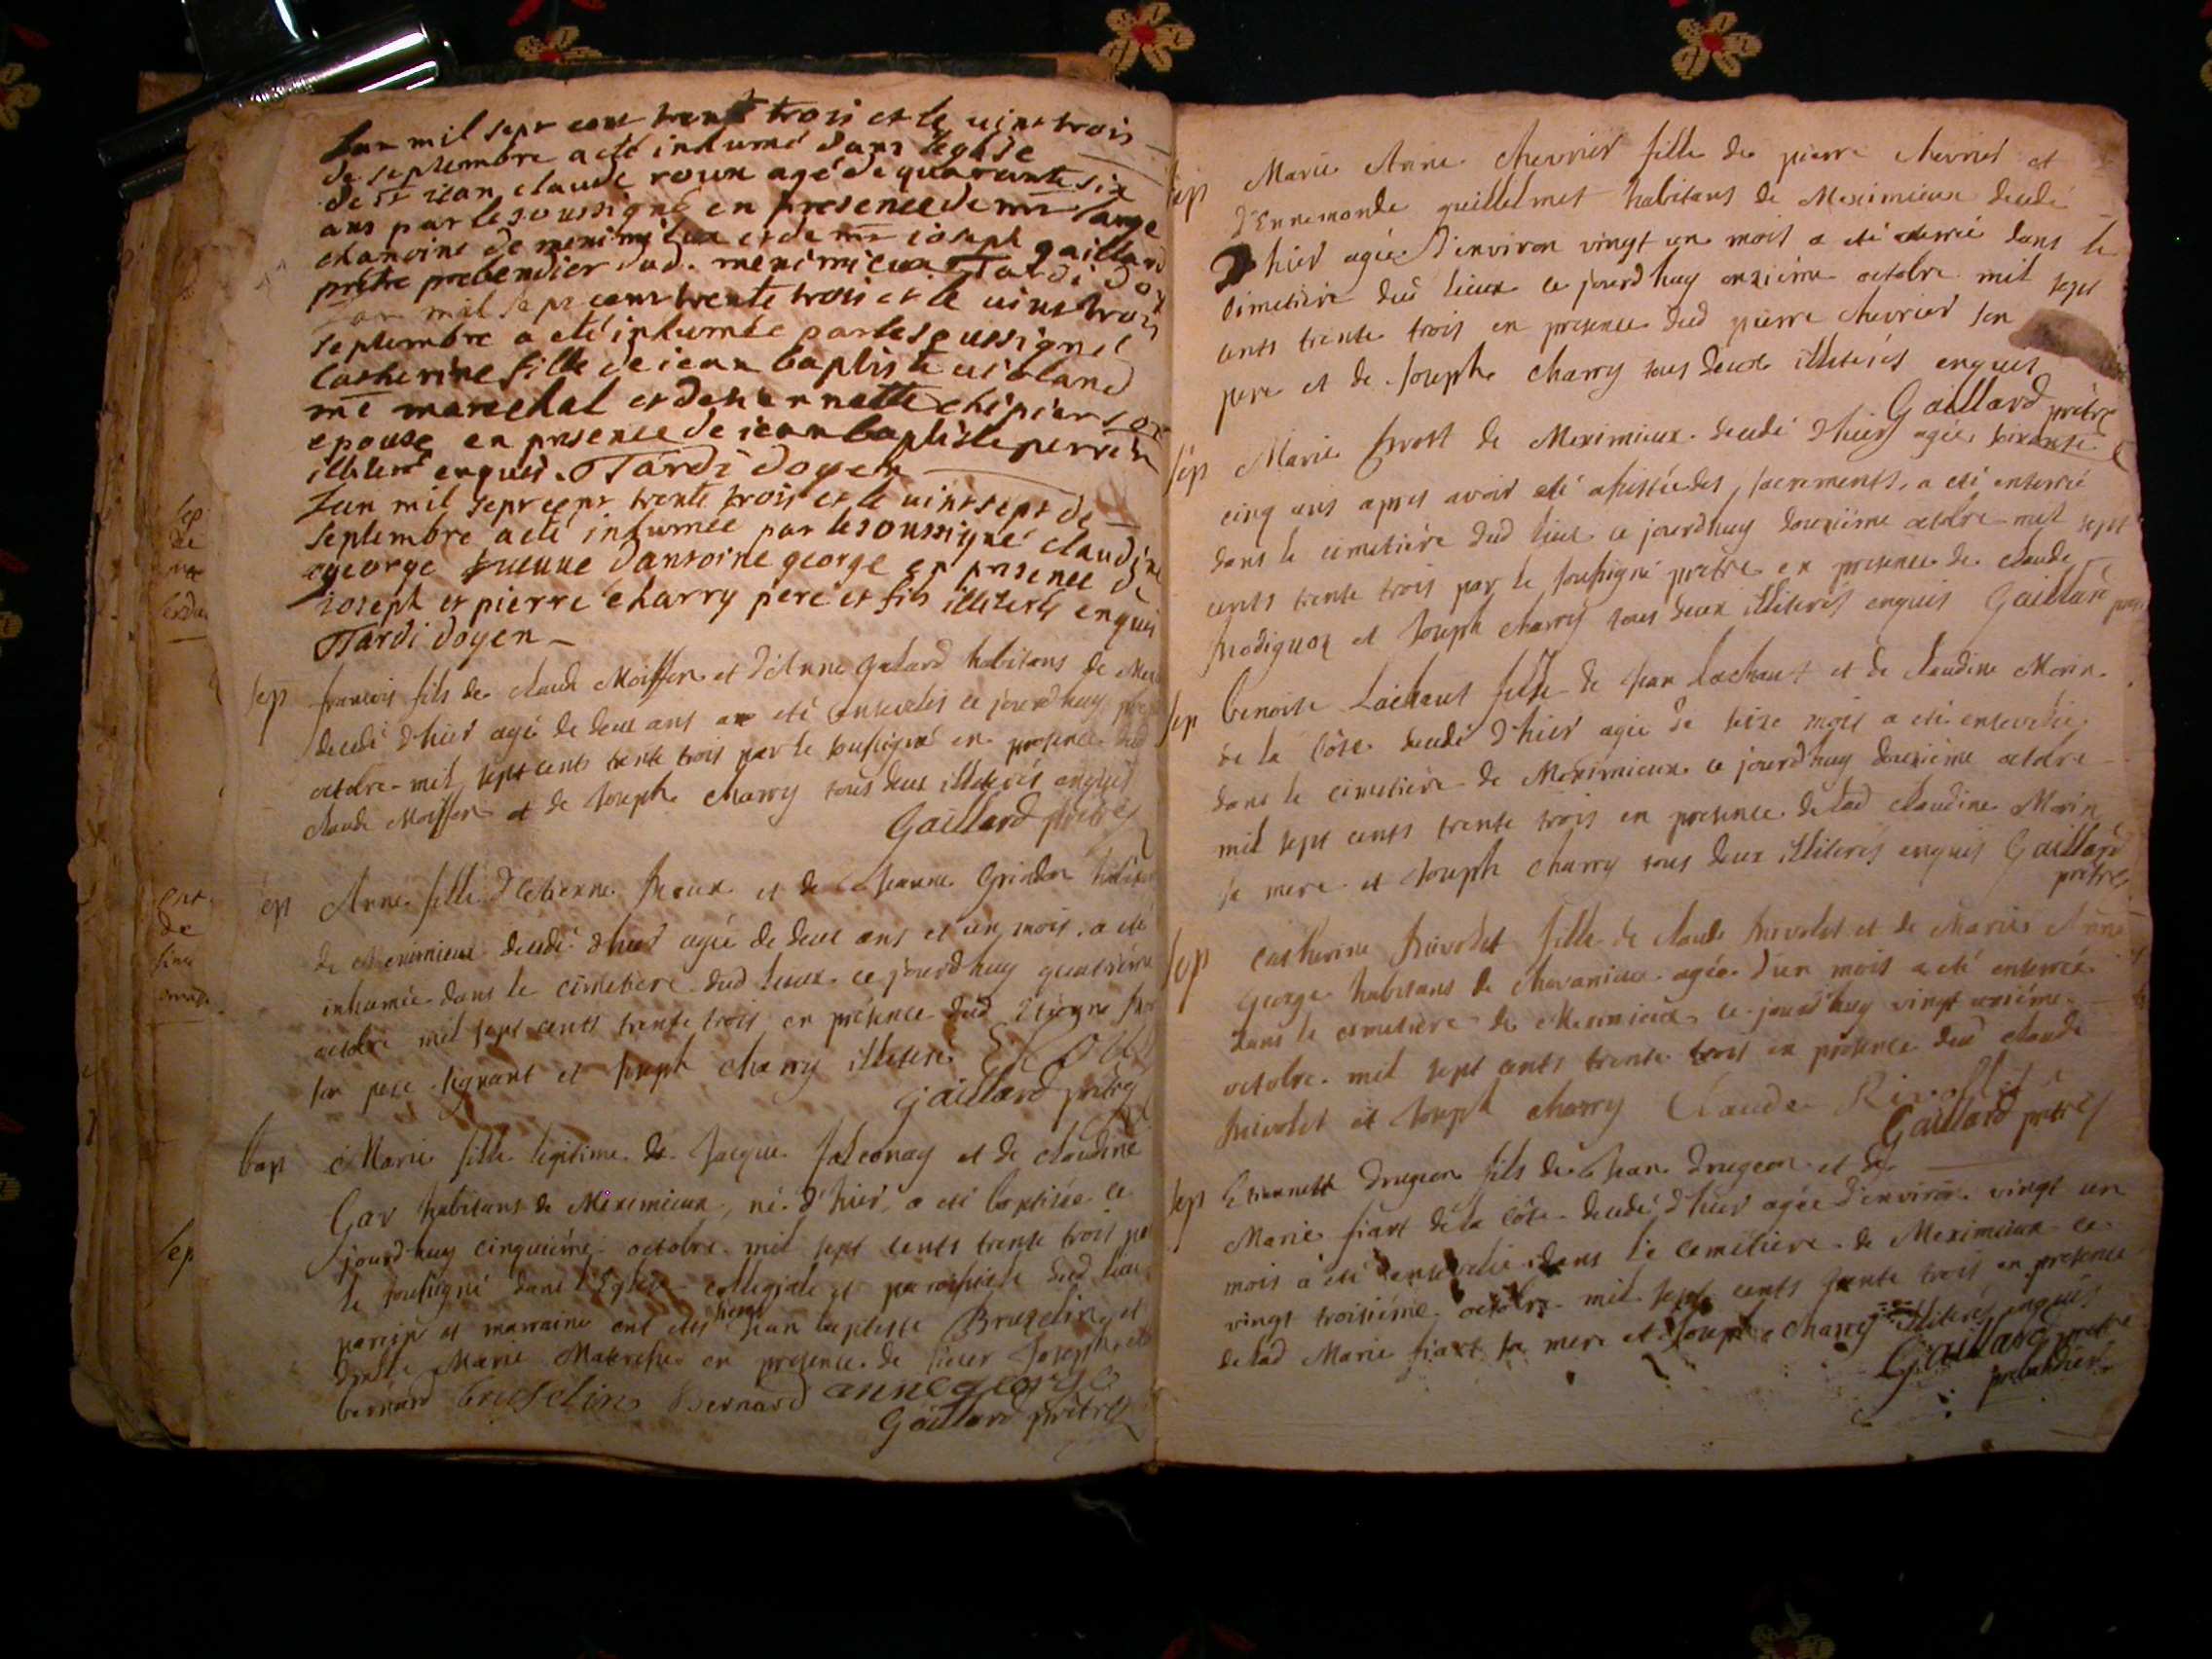 Lan mil sept cent trente trois et le vint trois
de septembre a eté inhumé dans leglise
de st iean claude roux agé de quarante six
ans par le soussigné en presence de mr lange
chanoine de meximieux et de mr ioseph gaillard
prêtre prebendier dud. meximieux Tardi doy
Lan mil sept cent trente trois et le vint trois
septembre a eté inhumée par le soussigné
Catherine fille de iean baptiste
me marechal et de chipier son
epouse en presence de iean baptiste perrin
illiteré enquis. Tardi doyen
Lan mil sept cent trente trois et le vint sept de
septembre a eté inhumée par le soussigné claudine
george veuve dantoine george en presence de
ioseph et pierre charry pere et fils illiterés enquis
Tardi doyen
sep francois fils de claude Moiffon et d'Anne habitans de Mexi
decedé d'hier agé de deux ans a eté ensevelis ce jourdhuy
octobre mil sept cents trente trois par le soussigné en presence dud
claude Moiffon et de Joseph charry tous deux illiterés enquis
Gaillard prêtre
sep Anne fille d'Etienne et de Jeanne Grindon habitans
de Meximieux decedé d'hier agée de deux ans et un mois, a eté
inhumée dans le cimetiere dud lieux ce jourdhuy quatrième
octobre mil sept cents trente trois en présence dud Etienne
son pere signant et Joseph charry illiteré
Gaillard prêtre
bap Marie fille legitime de Jacque falconay et de claudine
habitans de Meximieux, né d'hier, a eté baptisée ce
jourdhuy cinquième octobre mil sept cents trente trois par
le soussigné dans l'Eglise collegiale et paroissiale dud lieu
parein et marraine ont etés sieur Jean baptiste Bruselin et
Marie en presence de sieur Joseph
bernard bruselin Bernard anne george
Gaillard prêtre
sep Marie Anne chevrier fille de pierre chevrier et
d'Ennemonde guillelmet habitans de Meximieux decedé
d'hier agée d'environ vingt un mois a eté dans le
cimetière dud lieux ce jourdhuy onzième octobre mil sept
cents trente trois en presence dud pierre chevrier son
pere et de Joseph charry tous deux illiterés enquis
Gaillard prêtre
sep Marie de Meximieux decedé d'hier agée soixante
cinq ans apres avoir eté assistée des sacrements, a eté enterrée
dans le cimetière dud lieu ce jourdhuy douzième octobre mil sept
cents trente trois par le soussigné prêtre en presence de claude
et Joseph charry tous deux illiterés enquis Gaillard
sep benoite Lachaut fille de Jean Lachaut et de claudine Morin
de la côte decedé d'hier agée de seize mois a eté ensevelie
dans le cimetière de Meximieux ce jourdhuy douzième octobre
mil sept cents trente trois en presence de lad claudine Morin
sa mere et Joseph charry tous deux illiterés enquis Gaillard
prêtre
sep catherine fille de claude et de Marie Anne
george habitans de chavanieux agée d'un mois a eté enterrée
dans le cimetière de Meximieux ce jourdhuy vingt unième
octobre mil sept cents trente trois en presence dud claude
et Joseph charry Claude
Gaillard prêtre
sep Etiennette drugeon fils de Jean drugeon et de
Marie fiart de la côte decedé d'hier agée d'environ vingt un
mois a eté ensevelie dans le cemetiere de Meximieux ce
vingt troisième octobre mil sept cents trente trois en presence
de lad Marie fiart sa mere et Joseph charry illiterés enquis
Gaillard prêtre
prebendier